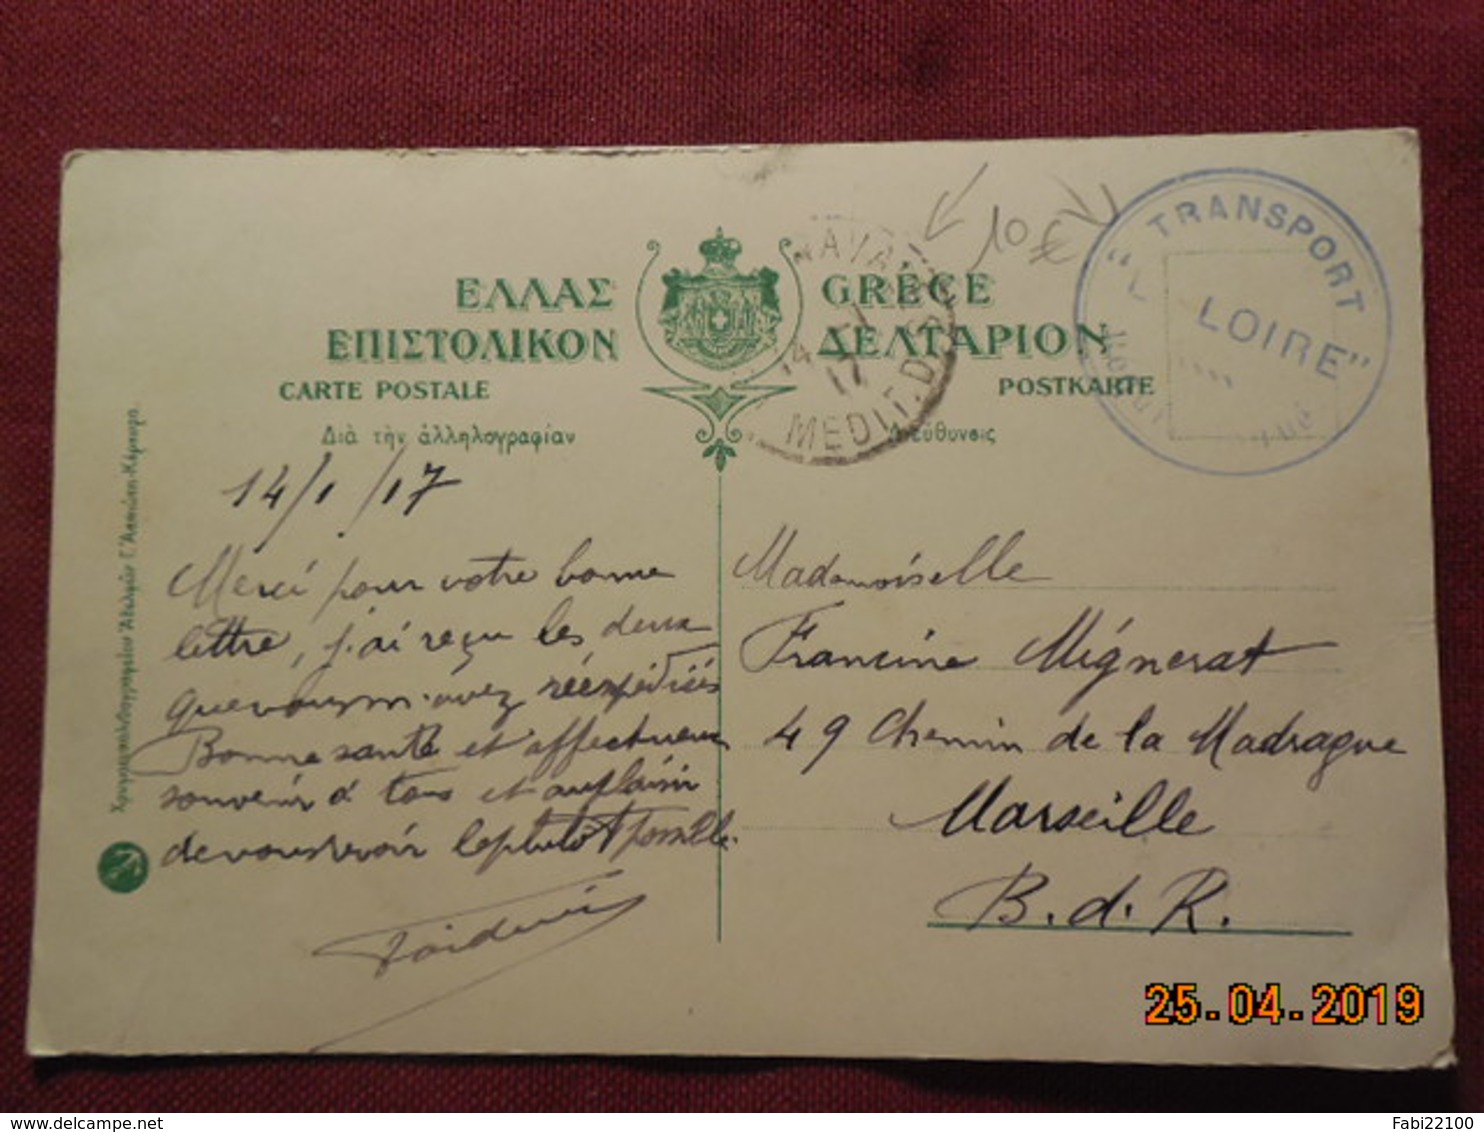 ΕΛΛΑΣ GRÈCE
ΕΠΙΣΤΟΛΙΚΟΝ ΔΕΛΤΑΡΙΟΝ
CARTE POSTALE POSTKARTE
Διὰ τὴν ἀλληλογραφίαν Διεύθυνσις
MEDIT. D
14
17
10 €
TRANSPORT
"LA LOIRE"
14/1/17
Merci pour votre bonne
lettre, j'ai reçu les deux
que vous m'avez réexpédiés
Bonne santé et affectueux
souvenir à tous et au plaisir
de vous revoir le plutôt possible.
Mademoiselle
Francine Mignerat
49 Chemin de la Madrague
Marseille
B. d. R.
25.04.2019
Fabi22100